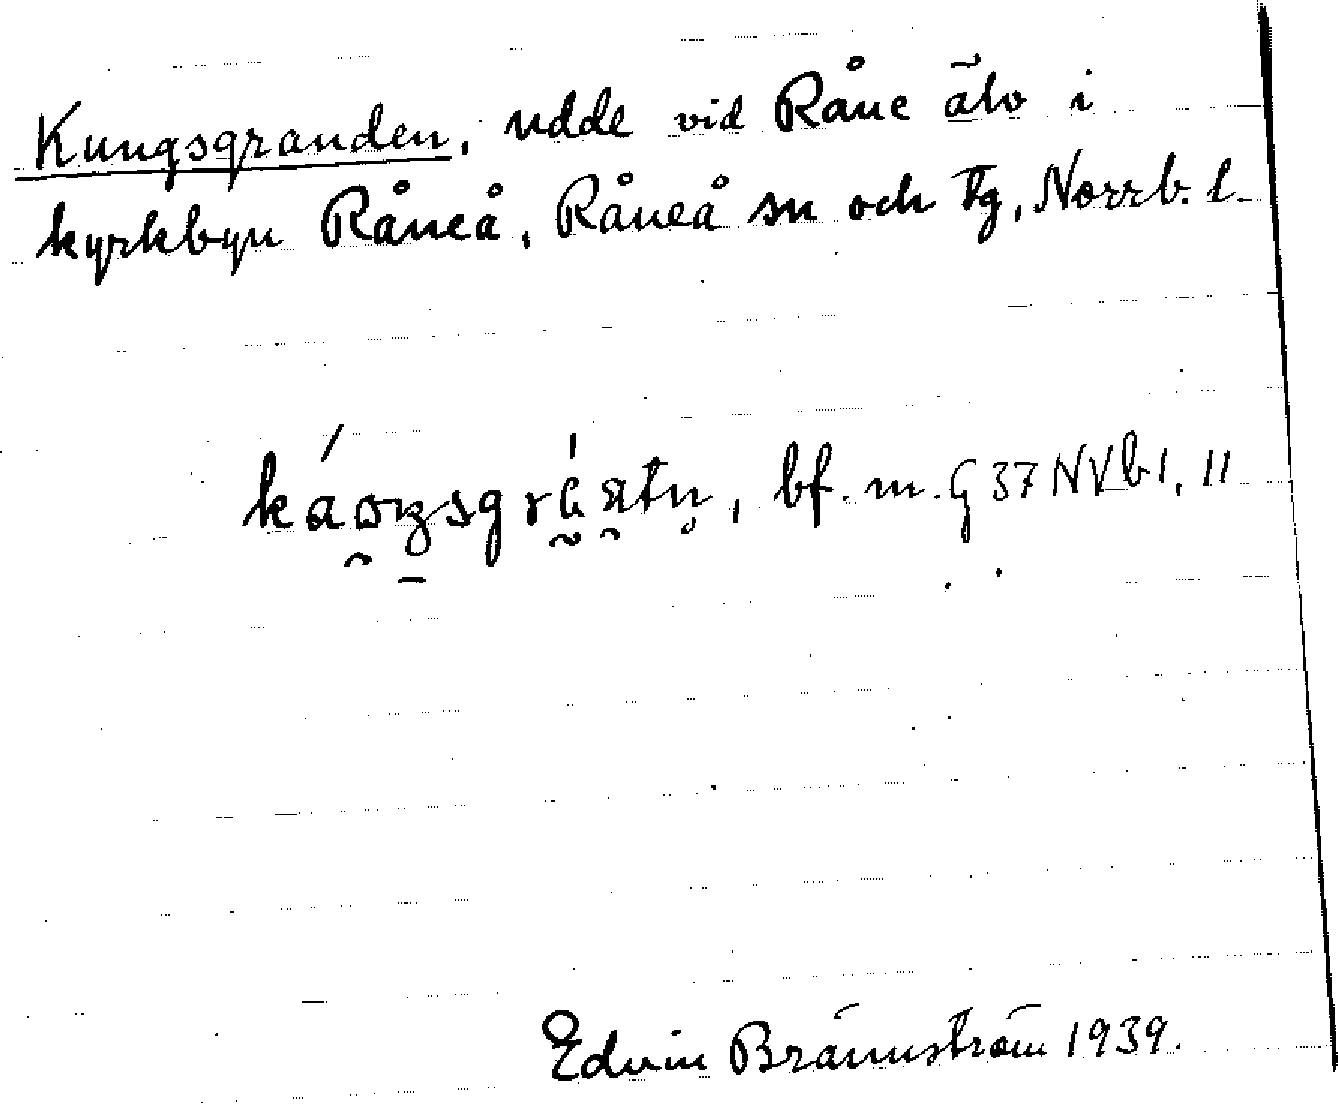 Kungsgranden, udde vid Råne älv i
kyrkbyn Råneå, Råneå sn och tg, Norrb. l.
bf. m. G 37 NVb 1, 11
Edvin Brännström 1939.